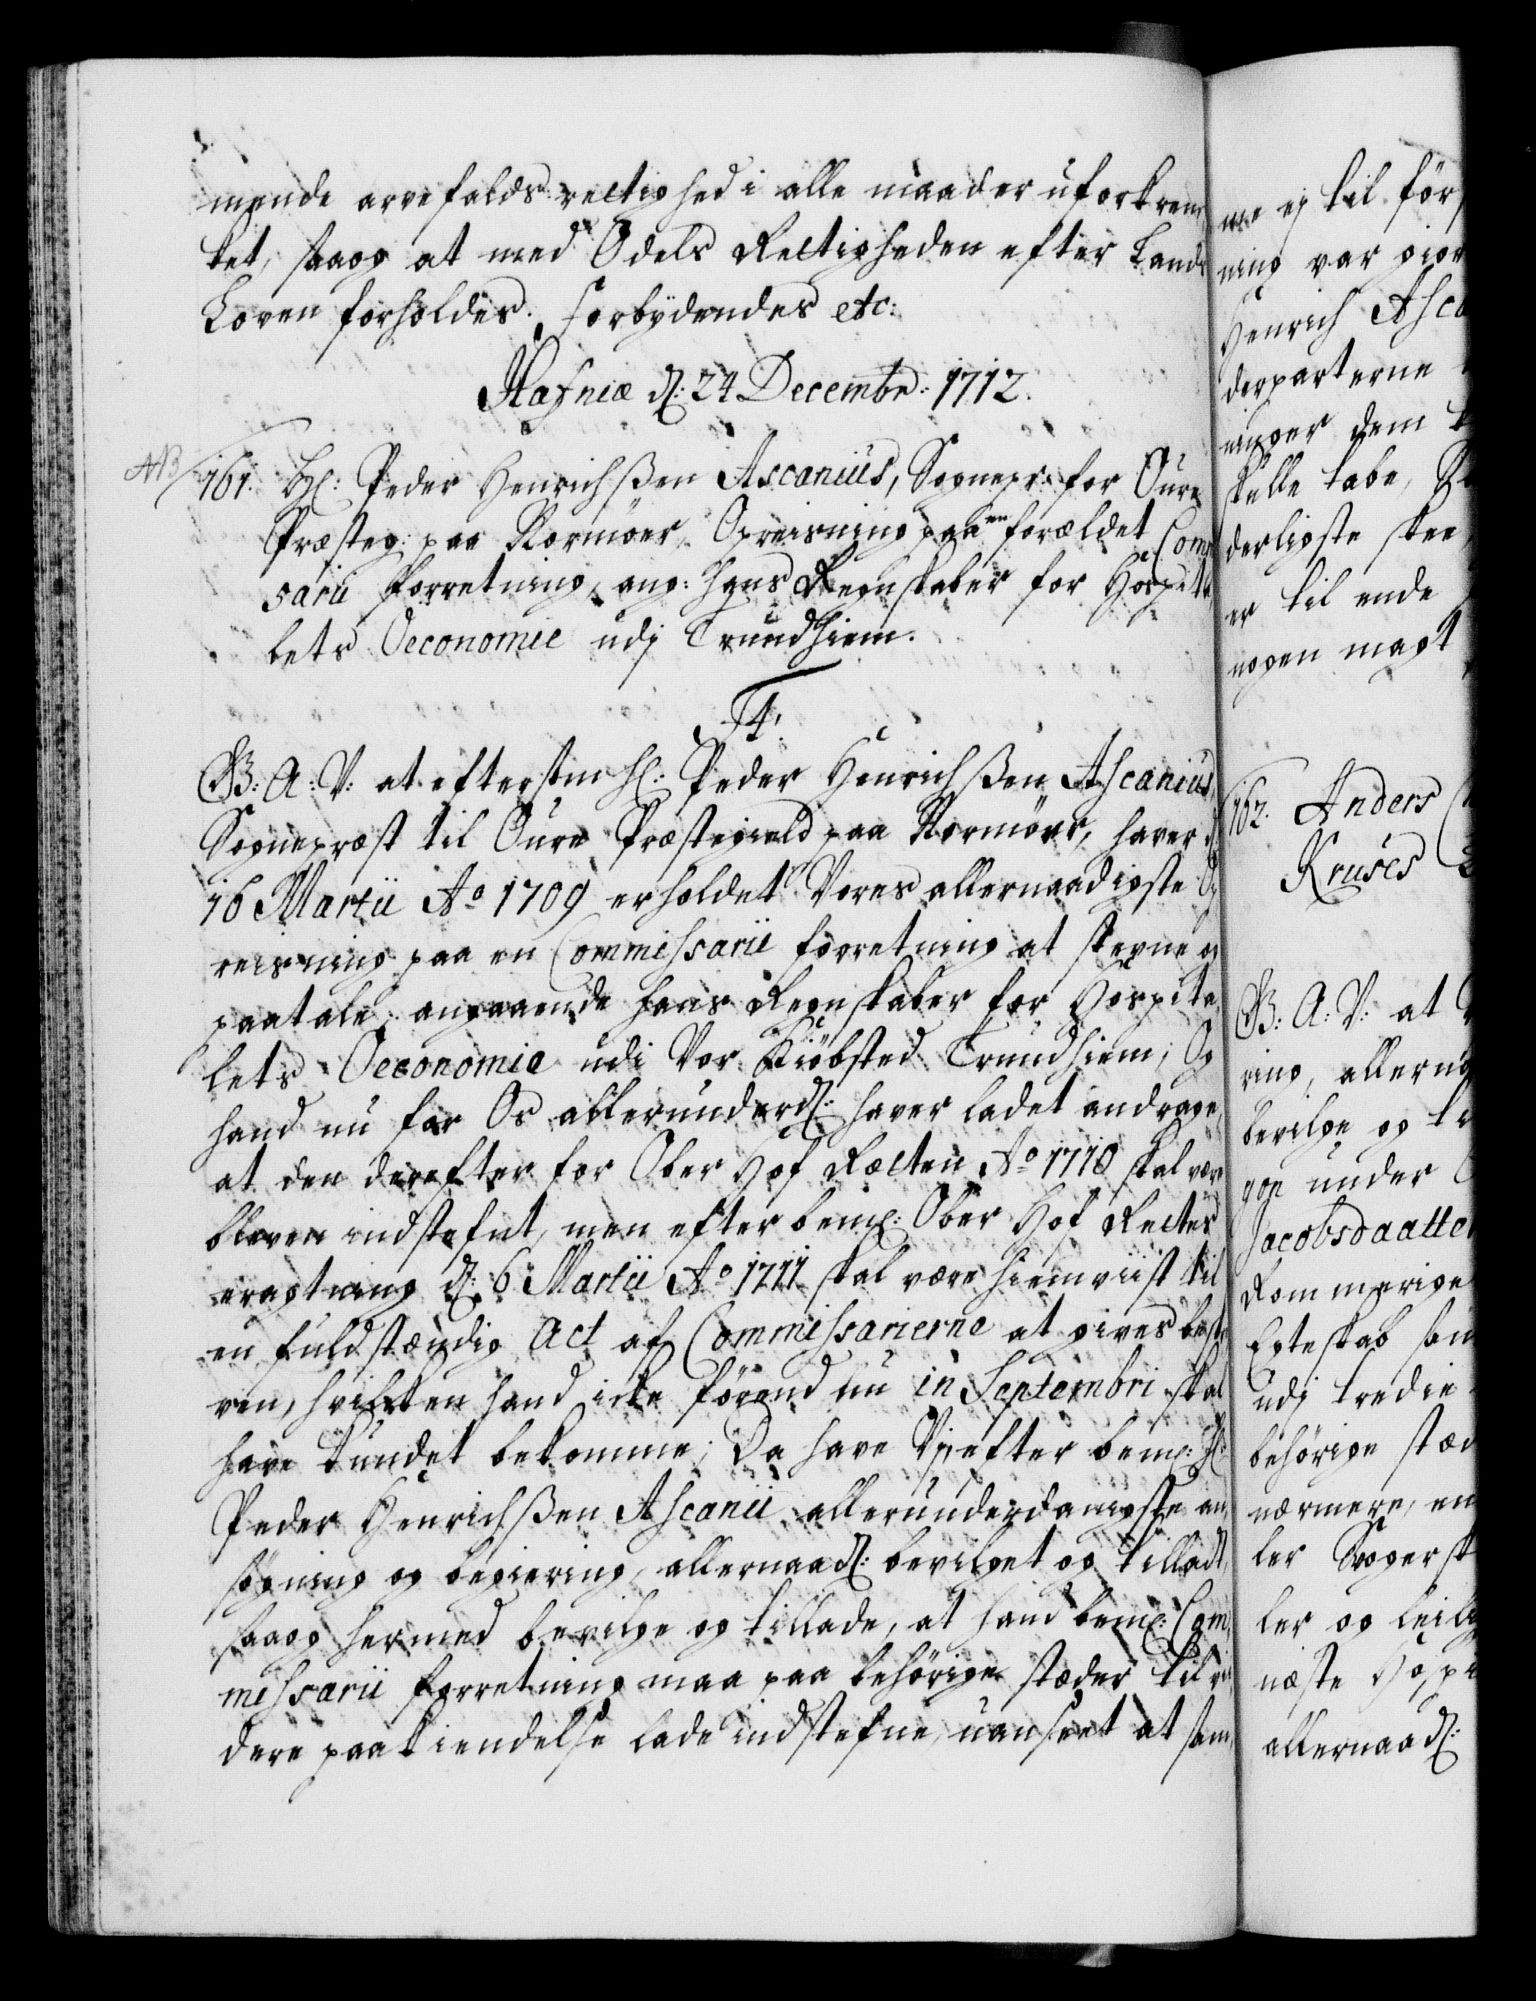 mende arvefalds rectighed i alle maader uforkren
ket, saaog at med Odels Rectigheden efter Lands
Loven forholdes. Forbydendes etc:
Hafniæ d: 24 Decembr: 1712.
NB
161. Hr: Peder Henrichßen Ascanius, Sognepr: for Oure
Præsteg: paa Normöer, Opreisning paa en forældet Com
sarii forretning, ang: hans Regnskaber for Hospita
lets Oeconomie udj Trundhiem.
F4.
G: A: V: at eftersom Hr: Peder Henrichßen Ascanius,
Sognepræst til Oure Præstegield paa Normöer, haver d:
16 Martii Ao 1709 erholdet Vores allernaadigste Op
reisning paa en Commissarii forretning at stevne og
paatale, angaaende hans Regnskaber for Hospita
lets Oeconomie udi Vor Kiöbsted Trundhiem, Og
hand nu for Os allerunderd: haver ladet andrage,
at den derefter for Ober Hof Retten Ao 1710 skal være
bleven indstefnt, men efter bem: Ober Hof Rettes
eragtning d: 6 Martii Ao 1711 skal være hiemviist til
en fuldstændig Act af Commissarierne at gives beskre
ven, hvilken hand icke förend nu in Septembri skal
have kundet bekomme; Da have Vj efter bem: Hr:
Peder Henrichßen Ascanii allerunderdanigste an
sögning og begiering, allernaad: bevilget og tilladt,
saaog hermed bevilge og tillade, at hand bem: Com
missarii forretning maa paa behörige stæder til vi
dere paakiendelse lade indstefne, uanseet at sam
me ej til för
ning var gior
Henrich Asca
derparterne
ninger dem
skulle tabe, S
derligste skee
er til ende
nogen magt
162. Anders
Kruses
G: A: V: at
ring, allern
bevilge og
gen under
Jacobsdaatte
Rommerige
Egteskab sam
udj tredie
behörige stæd
nærmere, en
ler Svogersk
ler og leilig
næste Hospi
allernaad: